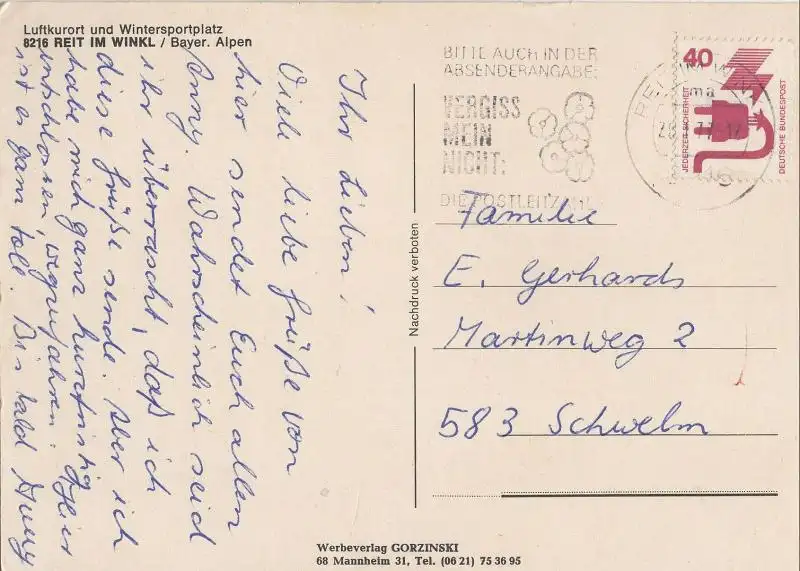 Luftkurort und Wintersportplatz
8216 REIT IM WINKL / Bayer. Alpen
Ihr Lieben!
Viele liebe Grüße von
hier sendet Euch allen
Anny. Wahrscheinlich seid
ihr überrascht, daß ich
diese Grüße sende. Aber ich
habe mich ganz kurzfristig
entschlossen, wegzufahren. Hier
ist es ganz toll. Bis bald Anny
Nachdruck verboten
BITTE AUCH IN DER
ABSENDERANGABE:
VERGISS
MEIN
NICHT:
DIE POSTLEITZAHL
40
JEDERZEIT SICHERHEIT
DEUTSCHE BUNDESPOST
ma
Familie
E. Gerhards
Martinweg 2
583 Schwelm
Werbeverlag GORZINSKI
68 Mannheim 31, Tel. (06 21) 75 36 95